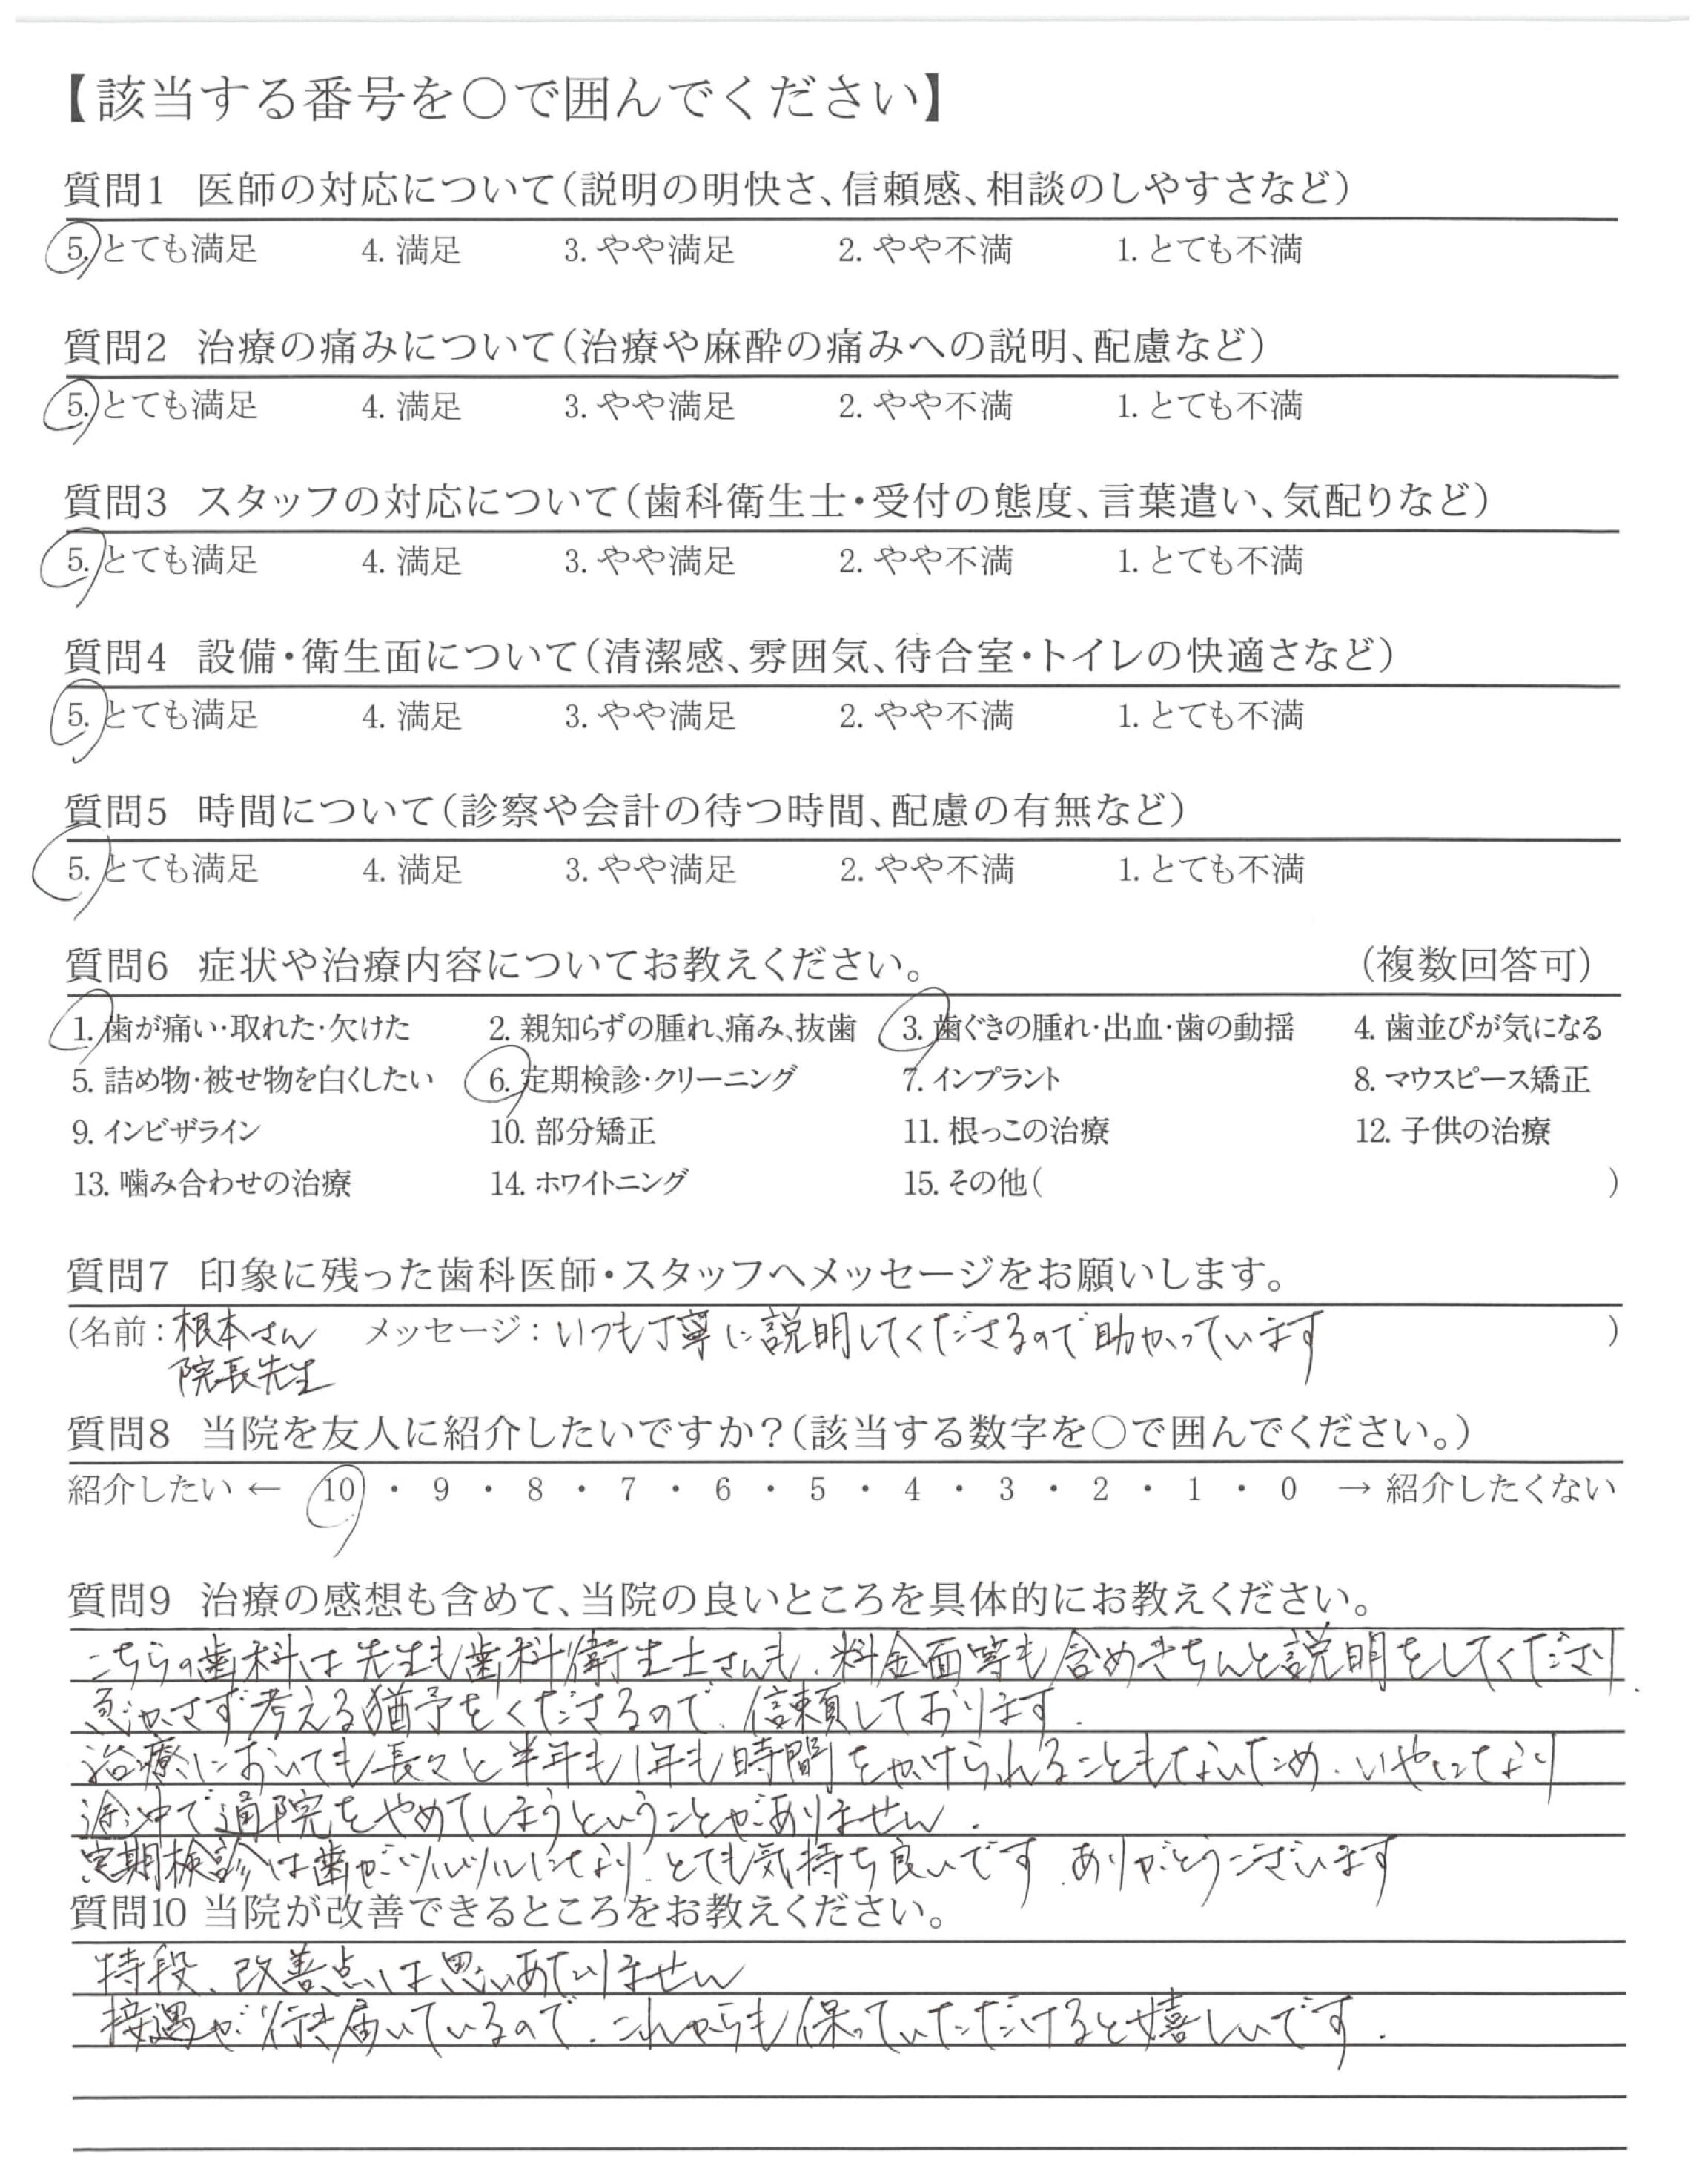 【該当する番号を〇で囲んでください】
質問1 医師の対応について(説明の明快さ、信頼感、相談のしやすさなど)
5. とても満足 4. 満足 3. やや満足 2. やや不満 1. とても不満
質問2 治療の痛みについて(治療や麻酔の痛みへの説明、配慮など)
5. とても満足 4. 満足 3. やや満足 2. やや不満 1. とても不満
質問3 スタッフの対応について(歯科衛生士・受付の態度、言葉遣い、気配りなど)
5. とても満足 4. 満足 3. やや満足 2. やや不満 1. とても不満
質問4 設備・衛生面について(清潔感、雰囲気、待合室・トイレの快適さなど)
5. とても満足 4. 満足 3. やや満足 2. やや不満 1. とても不満
質問5 時間について(診察や会計の待つ時間、配慮の有無など)
5. とても満足 4. 満足 3. やや満足 2. やや不満 1. とても不満
質問6 症状や治療内容についてお教えください。 (複数回答可)
1. 歯が痛い・取れた・欠けた 2. 親知らずの腫れ、痛み、抜歯 3. 歯ぐきの腫れ・出血・歯の動揺 4. 歯並びが気になる
5. 詰め物・被せ物を白くしたい 6. 定期検診・クリーニング 7. インプラント 8. マウスピース矯正
9. インビザライン 10. 部分矯正 11. 根っこの治療 12. 子供の治療
13. 噛み合わせの治療 14. ホワイトニング 15. その他( )
質問7 印象に残った歯科医師・スタッフへメッセージをお願いします。
(名前:根本さん メッセージ:いつも丁寧に説明してくださるので助かっています )
院長先生
質問8 当院を友人に紹介したいですか?(該当する数字を〇で囲んでください。)
紹介したい ← 10 ・ 9 ・ 8 ・ 7 ・ 6 ・ 5 ・ 4 ・ 3 ・ 2 ・ 1 ・ 0 → 紹介したくない
質問9 治療の感想も含めて、当院の良いところを具体的にお教えください。
こちらの歯科は先生も歯科衛生士さんも、料金面等も含めきちんと説明をしてくださり
急かさず考える猶予をくださるので、信頼しております.
治療においても長々と半年も1年も時間をかけられることもないため、いやになり
途中で通院をやめてしまうということがありません.
定期検診は歯がツルツルになり、とても気持ち良いです ありがとうございます
質問10 当院が改善できるところをお教えください。
特段、改善点は思いあたりません
接遇が行き届いているので、これからも保っていただけると嬉しいです.